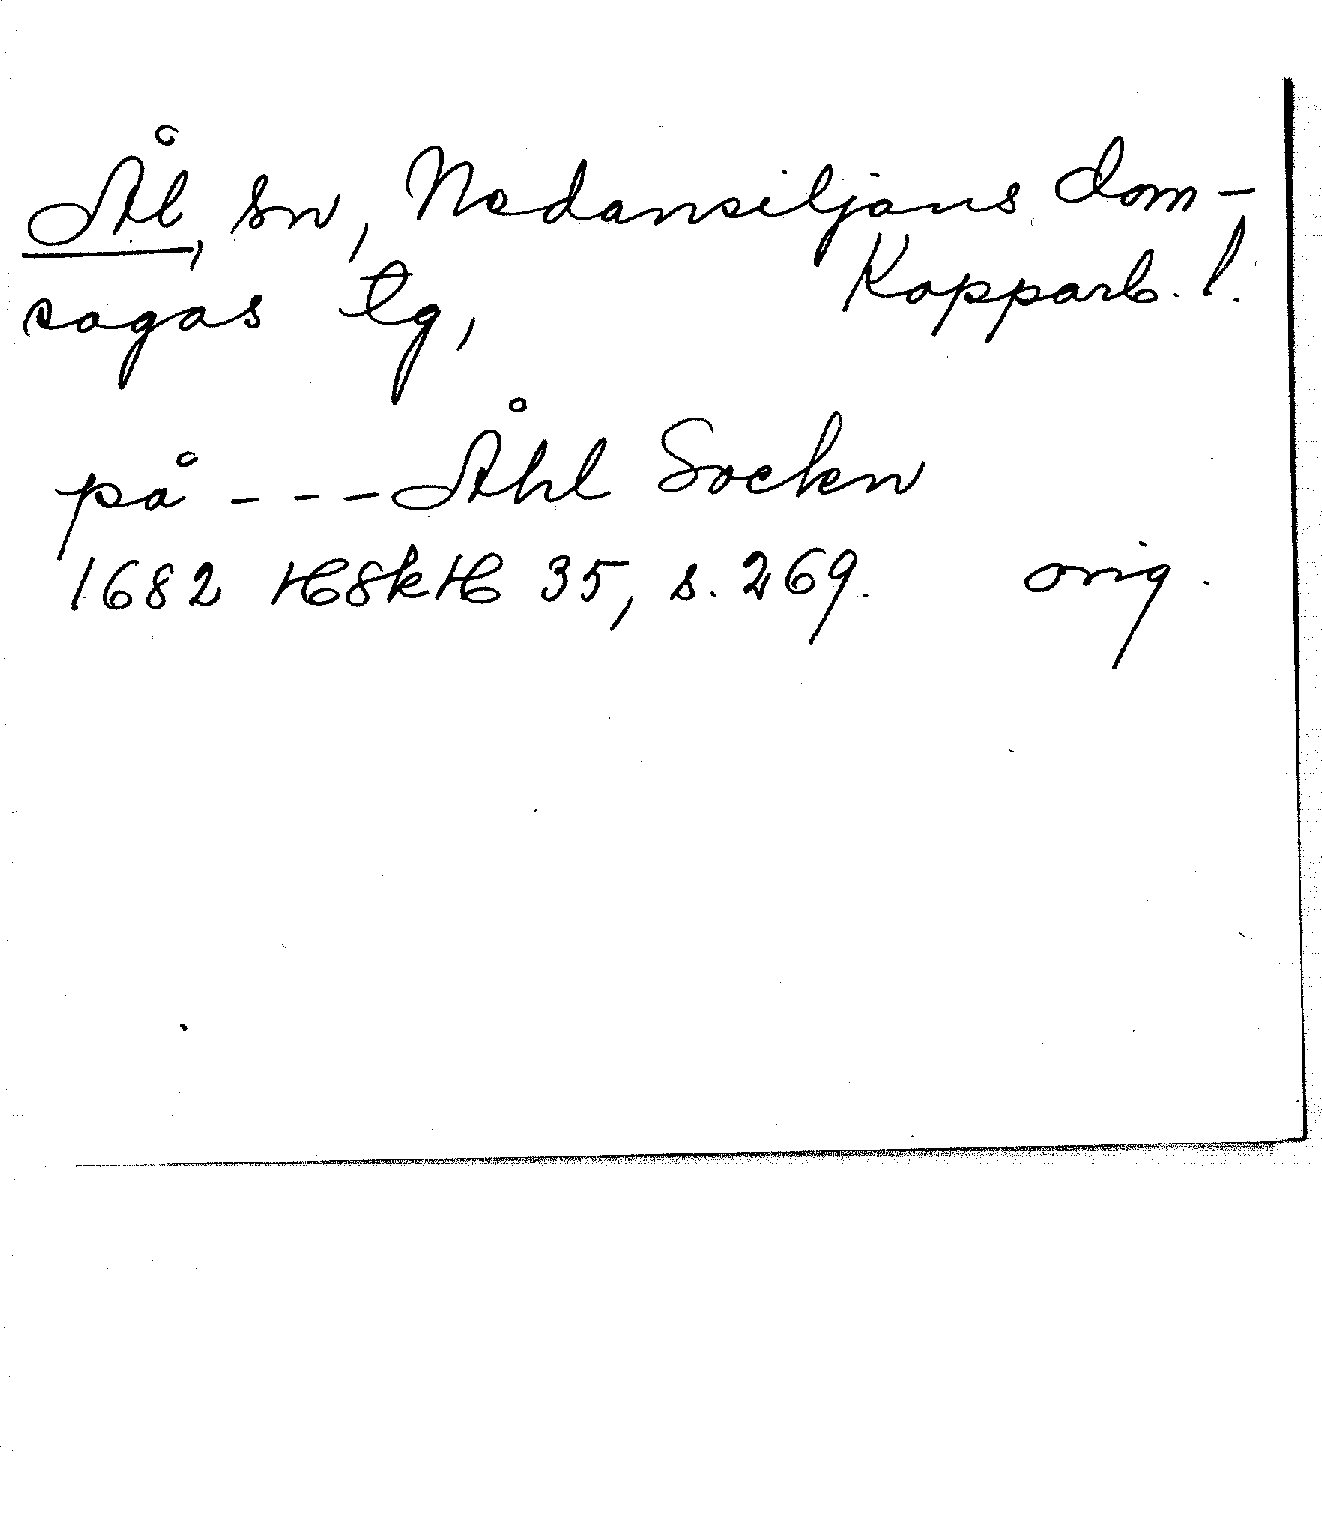 Ål, sn, Nedansiljans dom-
sagas tg, Kopparb. l.
på - - - Åhl Sockn
1682 HSkH 35, s. 269. orig.